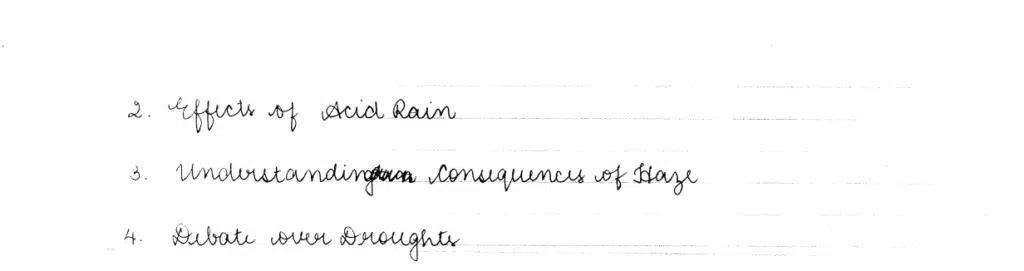 2. Effects of Acid Rain
3. Understanding Consequences of Haze
4. Debate over Droughts